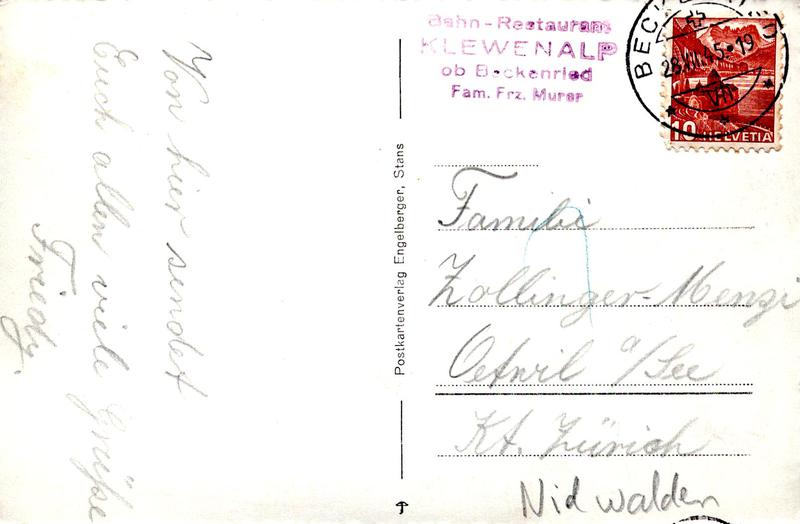 Von hier sendet
Euch allen viele Grüsse
Friedy.
Postkartenverlag Engelberger, Stans
Bahn-Restaurant
KLEWENALP
ob Beckenried
Fam. Frz. Murer
10 HELVETIA
Familie
Zollinger-Menzi
Oetwil a/See
Kt. Zürich
Nidwalden